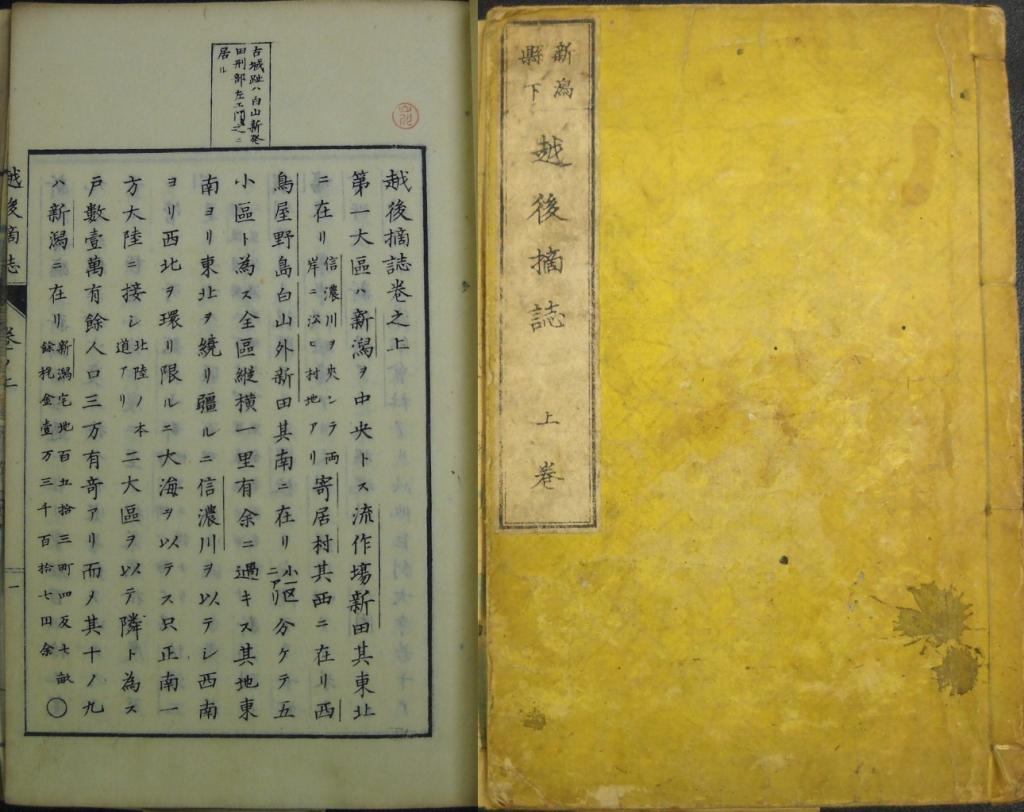 新潟
縣下
越後摘誌
上巻
古城趾ハ白山新発
田刑部左エ門之ニ
居ル
越後摘誌巻之上
第一大區ハ新潟ヲ中央トス流作塲新田其東北
ニ在リ信濃川ヲ夾ンテ両岸ニ沿ヒ村地アリ寄居村其西ニ在リ西
鳥屋野島白山外新田其南ニ在リ小一区ニアリ分ケテ五
小區ト為ス全區縦横一里有余ニ過キス其地東
南ヨリ東北ヲ繞リ疆ルニ信濃川ヲ以テシ西南
ヨリ西北ヲ環リ限ルニ大海ヲ以テス只正南一
方大陸ニ接シ北陸ノ本道アリ二大區ヲ以テ隣ト為ス
戸數壹萬有餘人口三万有竒アリ而メ其十ノ九
ハ新潟ニ在リ新潟宅地百五拾三町四反七畝余税金壹万三千百拾七円余
越後摘誌
巻之上
一